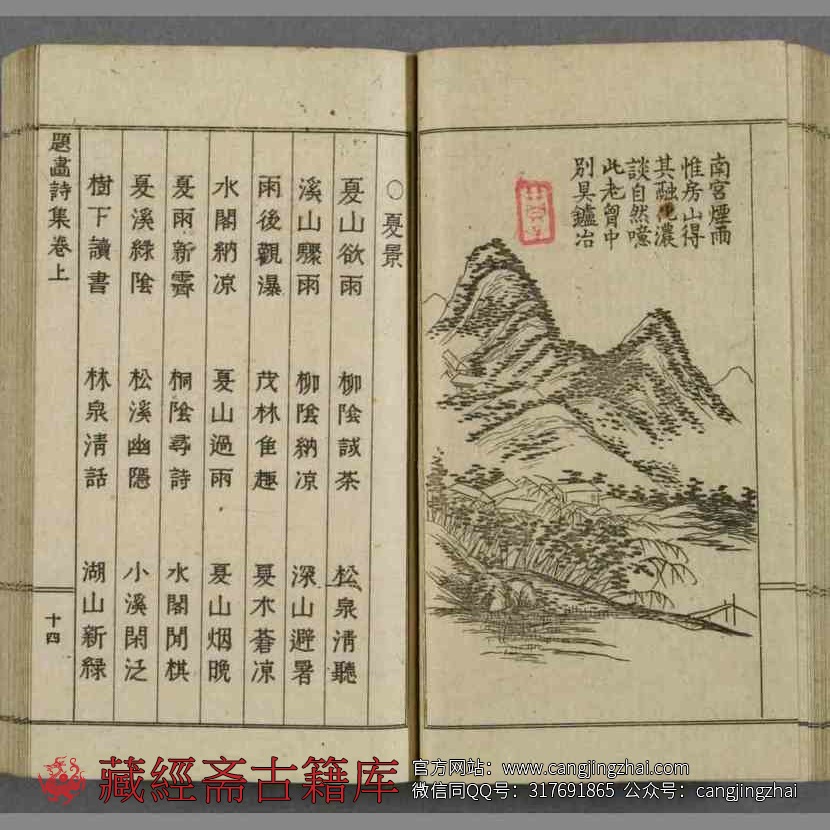 南宮煙雨
惟房山得
其融濃
談自然噫
此老胷中
別具鑪冶
○夏景
夏山欲雨 柳陰試茶 松泉清聽
溪山驟雨 柳陰納凉 深山避暑
雨後觀瀑 茂林隹趣 夏木蒼凉
水閣納凉 夏山過雨 夏山烟晚
夏雨新霽 桐陰尋詩 水閣閒棋
夏溪綠陰 松溪幽隱 小溪閑泛
樹下讀書 林泉清話 湖山新緑
題畵詩集卷上 十四
藏經斋古籍库
官方网站：www.cangjingzhai.com
微信同QQ号：317691865 公众号：cangjingzhai